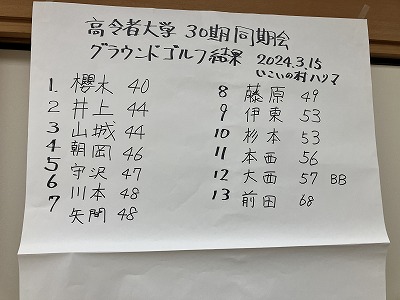 高令者大学 30期同期会
グラウンドゴルフ結果 2024.3.15
いこいの村ハリマ
1 櫻木 40
2 井上 44
3 山城 44
4 朝岡 46
5 守沢 47
6 川本 48
7 矢間 48
8 藤原 49
9 伊東 53
10 杉本 53
11 本西 56
12 大西 57 BB
13 前田 68